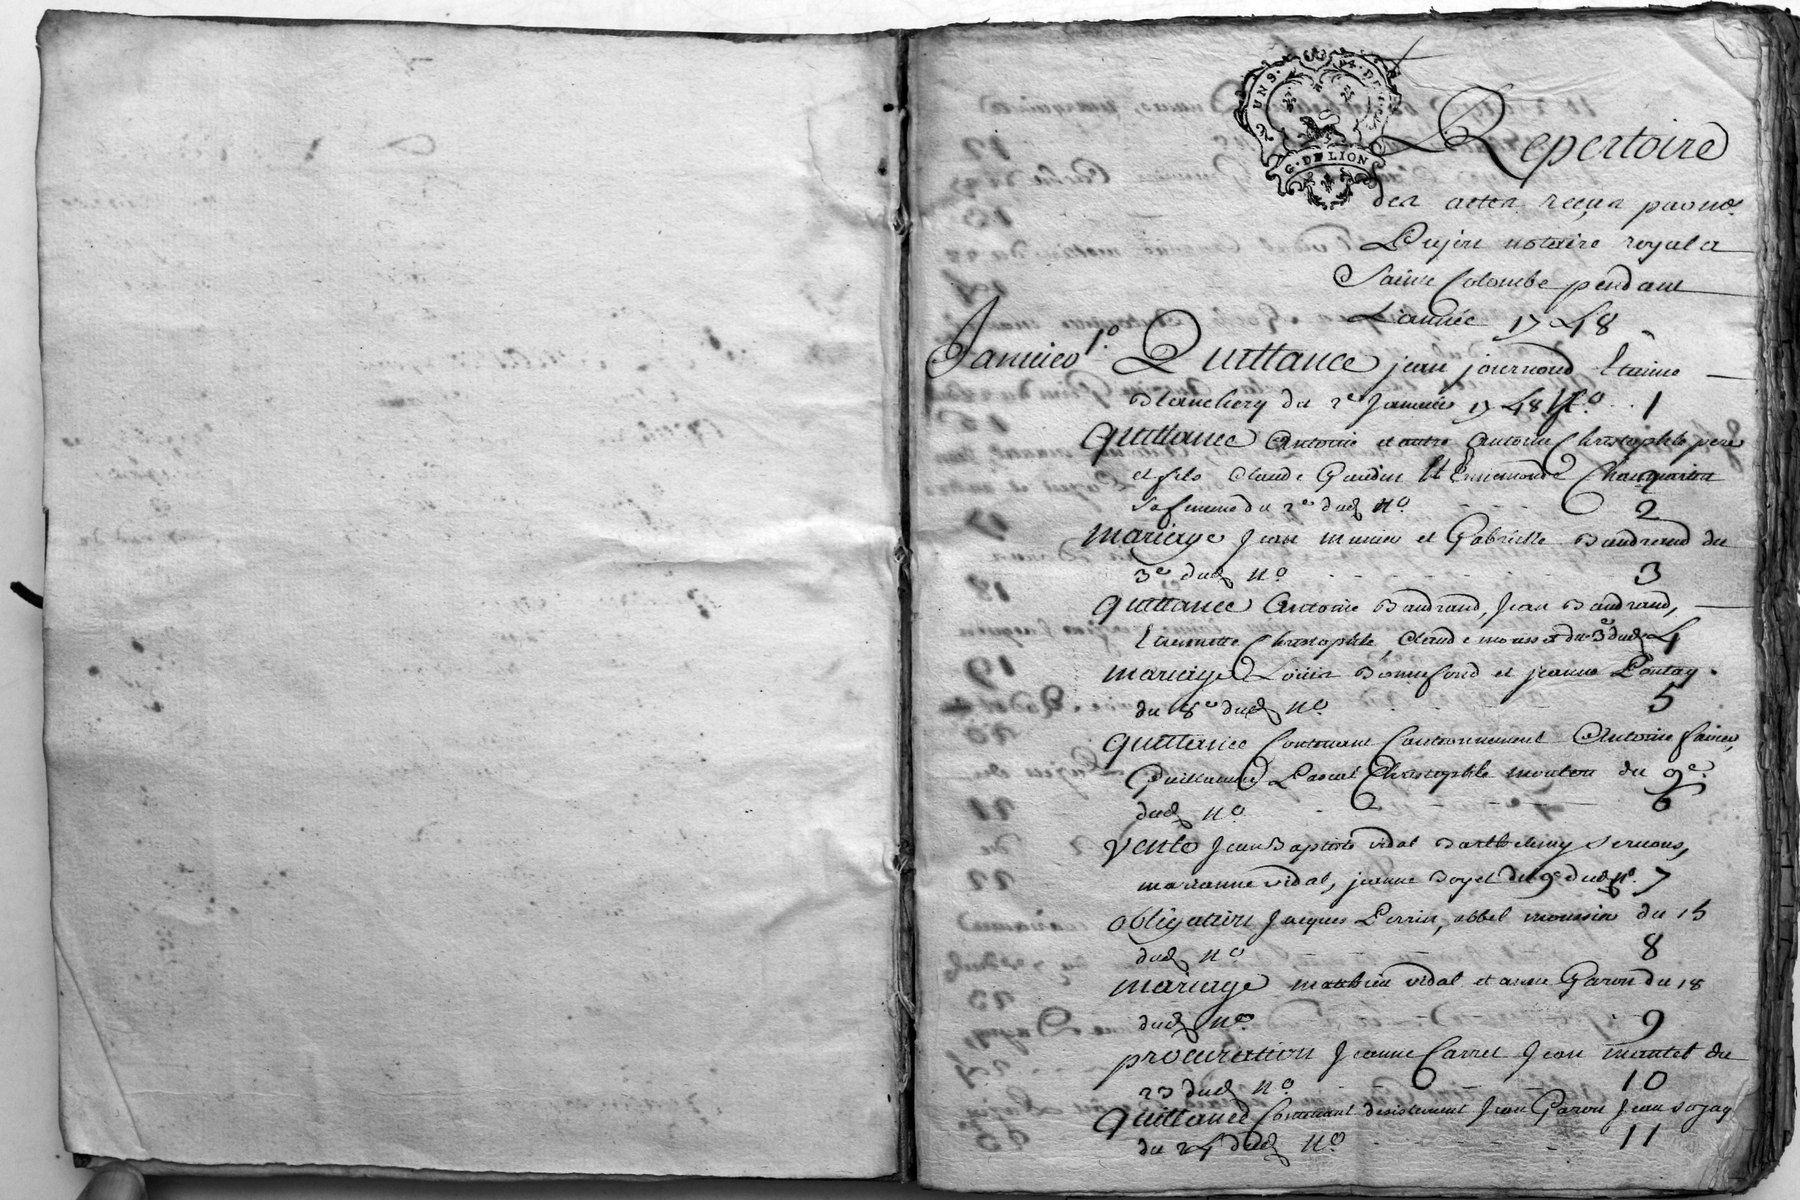 2 UN S. 4 DE
G. DE LION
Repertoire
des actes reçus par me.
Pujin notaire royal a
Sainte Colombe pendant
L'année 1748
Janvier 1.o Quittance jean journoud Etienne
Blanchery du 2e Janvier 1748 No. 1
quittance Antoine et autre Antoine Christophle pere
et fils Claude Gaudin et Ennemonde
sa femme du 2e dud No. 2
mariage Jean munier et Gabrielle Baudrand du
3e dud No 3
quittance Antoine Baudrand, Jean Baudrand,
Etiennette Christophle, Claude du 3e dud 4
mariage Louis Bonnefond et jeanne
du 8e dud No 5
quittance Contenant Cantonnement Antoine
Guillaume Pascal Christophle mouton du 9e.
dud No 6
vente Jean Baptiste vidal Barthelemy
marianne vidal, jeanne Boyet du 9e dud No. 7
obligation Jacques Perrin, abbel du 15
dud No 8
mariage matthieu vidal et anne Garon du 18
dud No 9
procuration Jeanne Carret Jean mantel du
23 dud No 10
quittance Contenant desistement Jean Garon Jean
du 24 dud No. 11